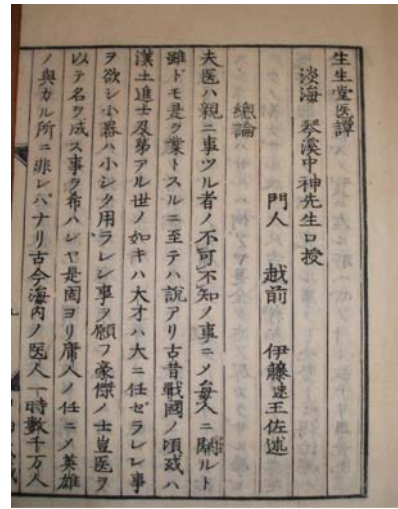 生生堂医譚
淡海 琴溪中神先生口授
門人 越前 伊藤 王佐述
總論
夫医ハ親ニ事ツル者ノ不可不知ノ事ニメ毎人ニ關ルト
雖ドモ是ヲ業トスルニ至テハ説アリ古昔戰國ノ頃或ハ
漢土進士及第アル世ノ如キハ大才ハ大ニ任ゼラレン事
ヲ欲シ小器ハ小シク用ラレン事ヲ願フ豪傑ノ士豈医ヲ
以テ名ヲ成ス事ヲ希ハンヤ是固ヨリ庸人ノ任ニメ英雄
ノ與カル所ニ非レバナリ古今海内ノ医人一時數千万人